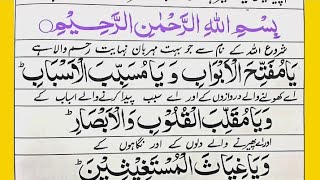 بِسْمِ اللهِ الرَّحْمٰنِ الرَّحِيْمِ
شروع اللہ کے نام سے جو بہت مہربان نہایت رحم والا ہے
يَا مُفَتِّحَ الْاَبْوَابِ وَيَا مُسَبِّبَ الْاَسْبَابِ
اے کھولنے والے دروازوں کے اور اے سبب پیدا کرنے والے اسباب کے
وَيَا مُقَلِّبَ الْقُلُوْبِ وَالْاَبْصَارِ
اور اے پھیرنے والے دلوں کے اور نگاہوں کے
وَيَا غِيَاثَ الْمُسْتَغِيْثِيْنَ